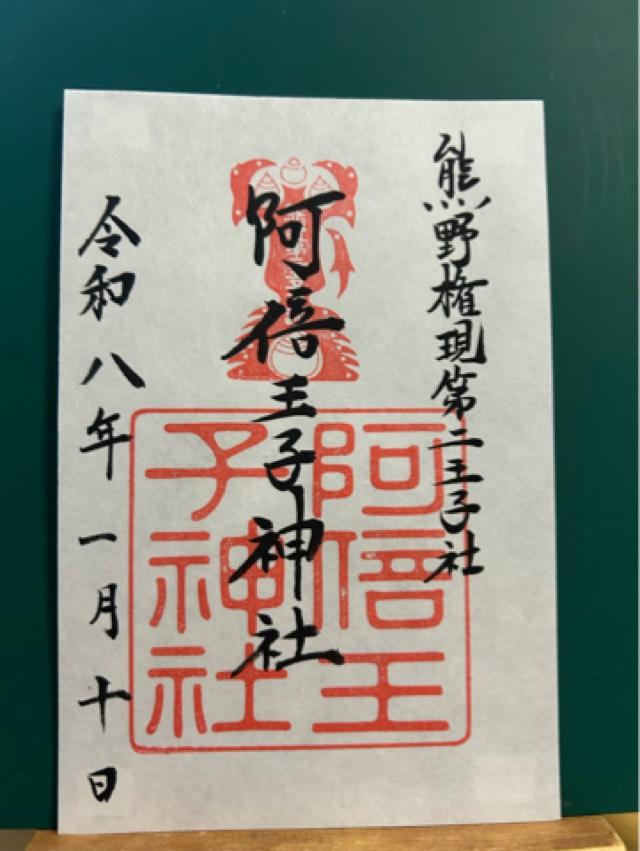 熊野権現第二王子社
阿倍王子神社
阿倍王
子神社
令和八年一月十日